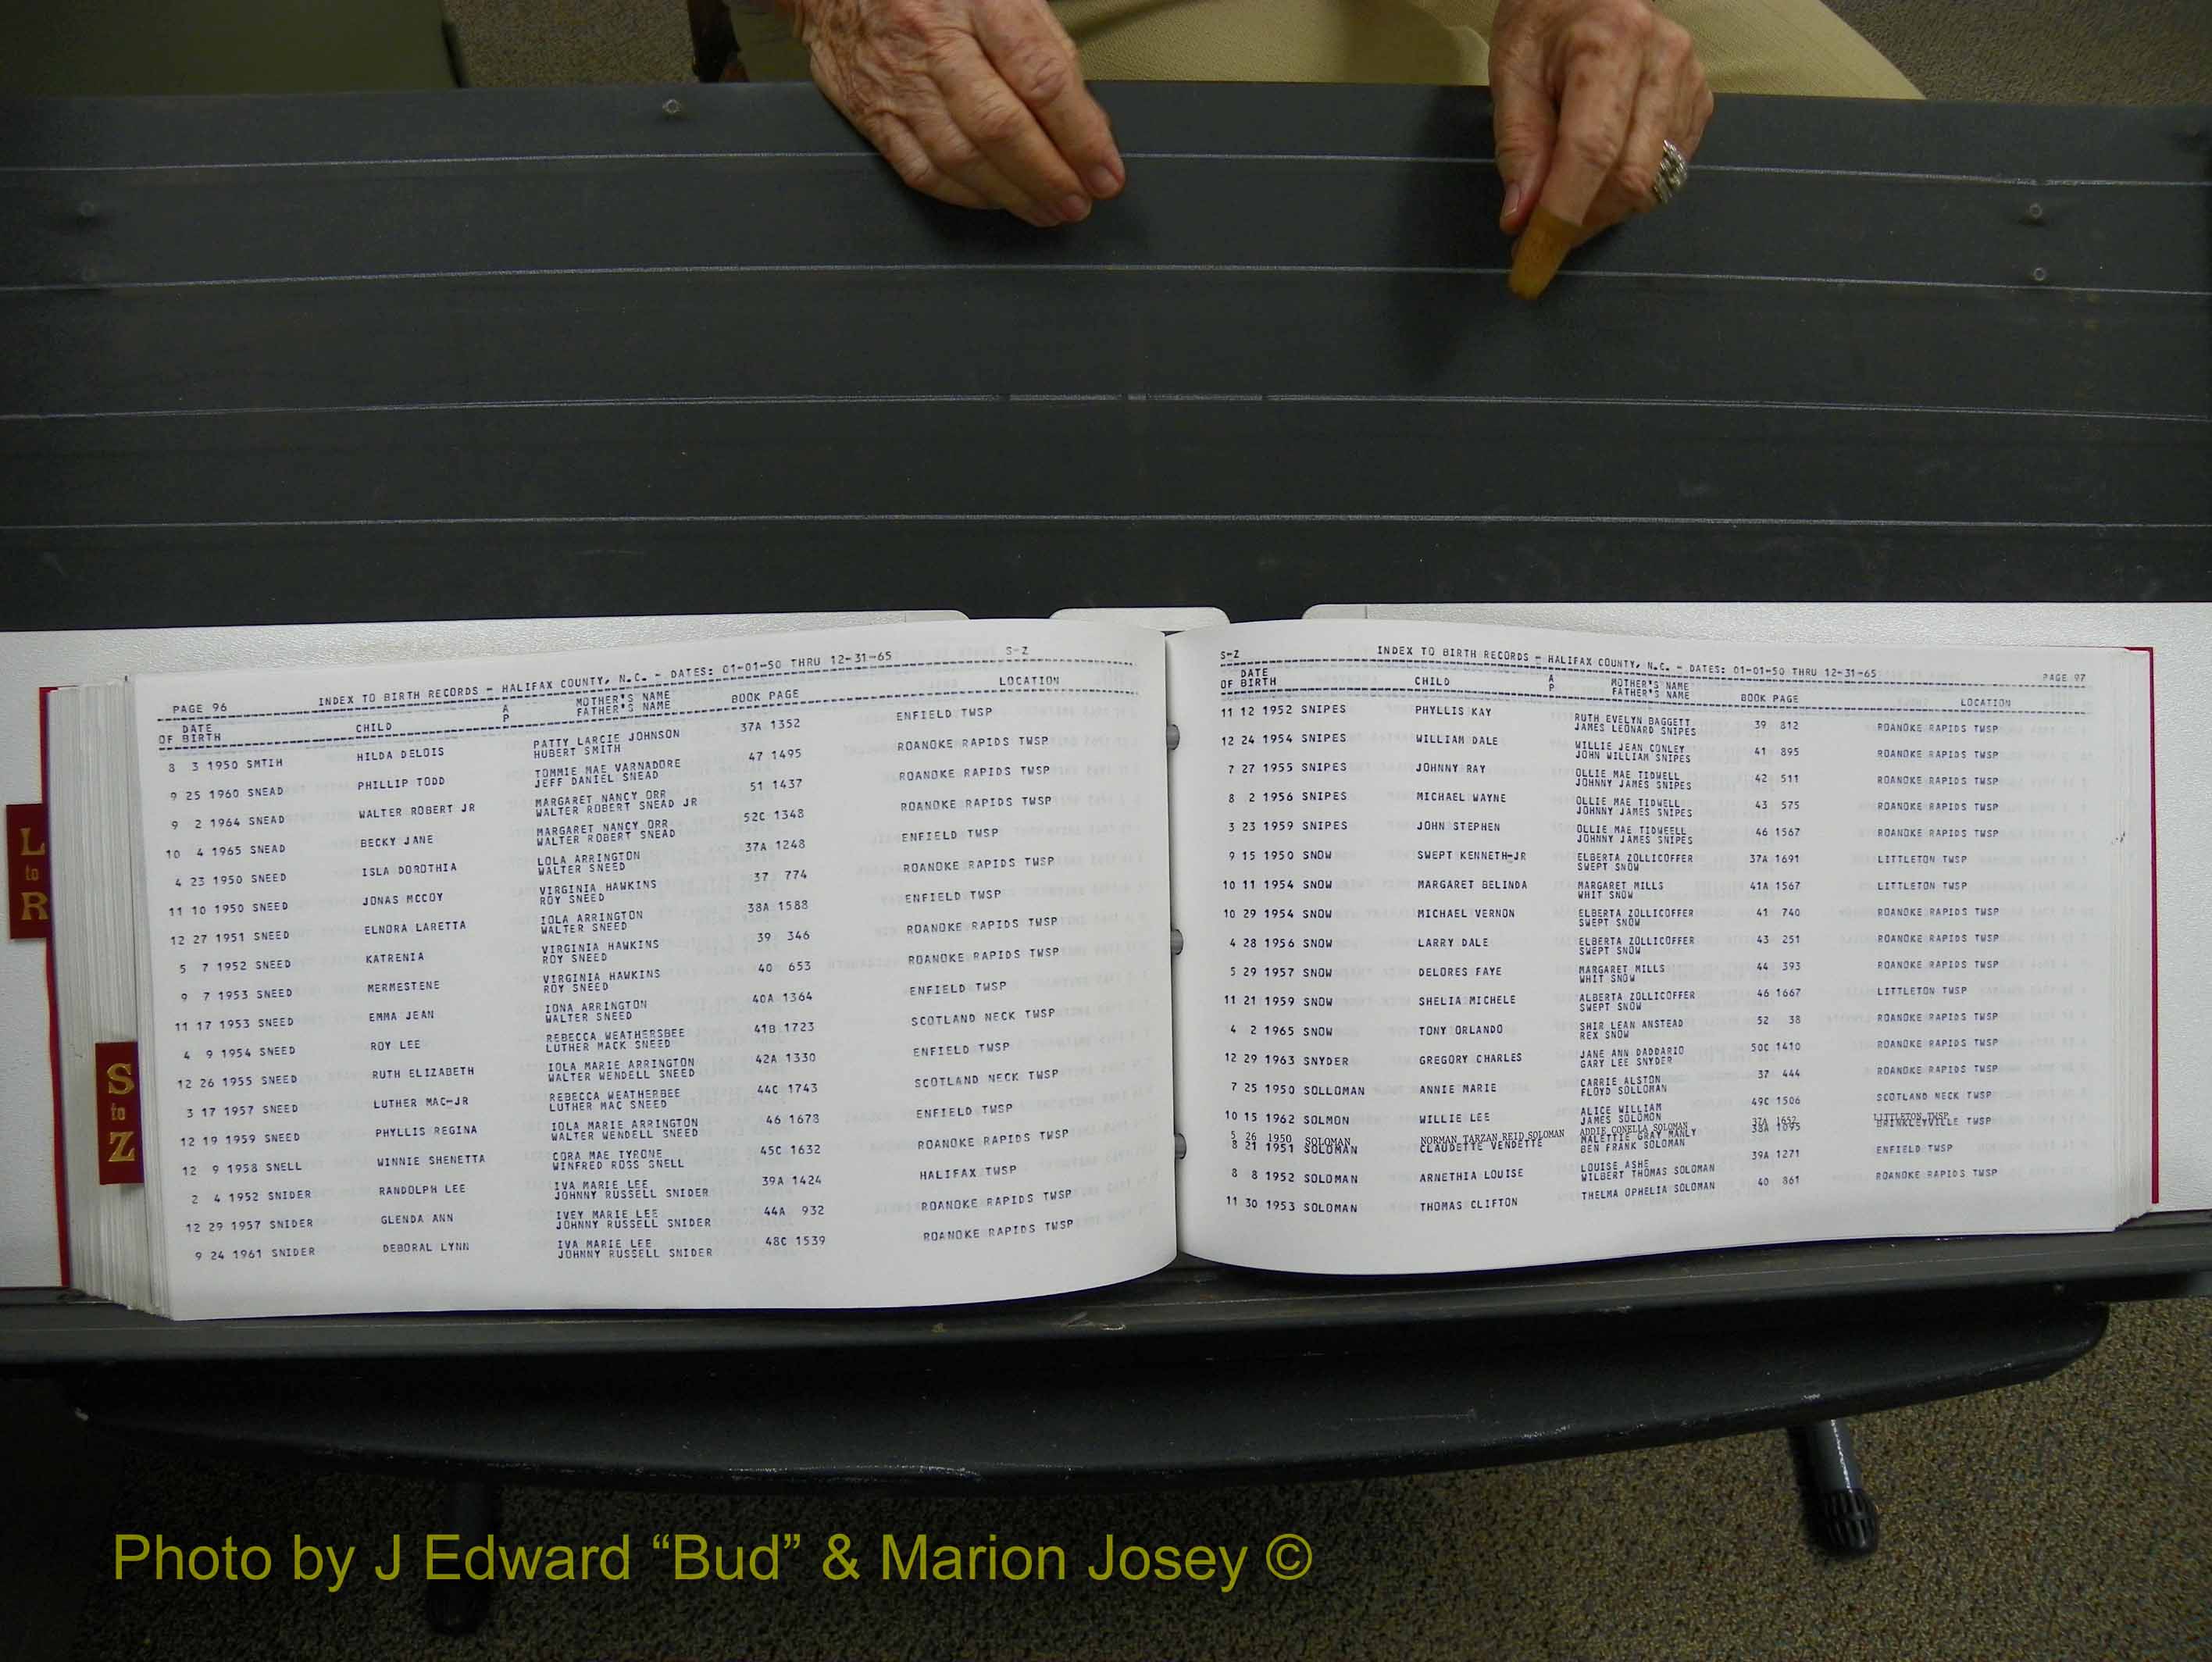 L
to
R
S
to
Z
PAGE 96 INDEX TO BIRTH RECORDS - HALIFAX COUNTY, N.C. - DATES: 01-01-50 THRU 12-31-65 S-Z
DATE OF BIRTH CHILD A P MOTHER'S NAME FATHER'S NAME BOOK PAGE LOCATION
8 3 1950 SMTIH HILDA DELOIS PATTY LARCIE JOHNSON 37A 1352 ENFIELD TWSP
HUBERT SMITH
9 25 1960 SNEAD PHILLIP TODD TOMMIE MAE VARNADORE 47 1495 ROANOKE RAPIDS TWSP
JEFF DANIEL SNEAD
9 2 1964 SNEAD WALTER ROBERT JR MARGARET NANCY ORR 51 1437 ROANOKE RAPIDS TWSP
WALTER ROBERT SNEAD JR
10 4 1965 SNEAD BECKY JANE MARGARET NANCY ORR 52C 1348 ROANOKE RAPIDS TWSP
WALTER ROBERT SNEAD
4 23 1950 SNEED ISLA DOROTHIA LOLA ARRINGTON 37A 1248 ENFIELD TWSP
WALTER SNEED
11 10 1950 SNEED JONAS MCCOY VIRGINIA HAWKINS 37 774 ROANOKE RAPIDS TWSP
ROY SNEED
12 27 1951 SNEED ELNORA LARETTA IOLA ARRINGTON 38A 1588 ENFIELD TWSP
WALTER SNEED
5 7 1952 SNEED KATRENIA VIRGINIA HAWKINS 39 346 ROANOKE RAPIDS TWSP
ROY SNEED
9 7 1953 SNEED MERMESTENE VIRGINIA HAWKINS 40 653 ROANOKE RAPIDS TWSP
ROY SNEED
11 17 1953 SNEED EMMA JEAN IONA ARRINGTON 40A 1364 ENFIELD TWSP
WALTER SNEED
4 9 1954 SNEED ROY LEE REBECCA WEATHERSBEE 41B 1723 SCOTLAND NECK TWSP
LUTHER MACK SNEED
12 26 1955 SNEED RUTH ELIZABETH IOLA MARIE ARRINGTON 42A 1330 ENFIELD TWSP
WALTER WENDELL SNEED
3 17 1957 SNEED LUTHER MAC-JR REBECCA WEATHERBEE 44C 1743 SCOTLAND NECK TWSP
LUTHER MAC SNEED
12 19 1959 SNEED PHYLLIS REGINA IOLA MARIE ARRINGTON 46 1678 ENFIELD TWSP
WALTER WENDELL SNEED
12 9 1958 SNELL WINNIE SHENETTA CORA MAE TYRONE 45C 1632 ROANOKE RAPIDS TWSP
WINFRED ROSS SNELL
2 4 1952 SNIDER RANDOLPH LEE IVA MARIE LEE 39A 1424 HALIFAX TWSP
JOHNNY RUSSELL SNIDER
12 29 1957 SNIDER GLENDA ANN IVEY MARIE LEE 44A 932 ROANOKE RAPIDS TWSP
JOHNNY RUSSELL SNIDER
9 24 1961 SNIDER DEBORAL LYNN IVA MARIE LEE 48C 1539 ROANOKE RAPIDS TWSP
JOHNNY RUSSELL SNIDER
S-Z INDEX TO BIRTH RECORDS - HALIFAX COUNTY, N.C. - DATES: 01-01-50 THRU 12-31-65 PAGE 97
DATE OF BIRTH CHILD A P MOTHER'S NAME FATHER'S NAME BOOK PAGE LOCATION
11 12 1952 SNIPES PHYLLIS KAY RUTH EVELYN BAGGETT 39 812 ROANOKE RAPIDS TWSP
JAMES LEONARD SNIPES
12 24 1954 SNIPES WILLIAM DALE WILLIE JEAN CONLEY 41 895 ROANOKE RAPIDS TWSP
JOHN WILLIAM SNIPES
7 27 1955 SNIPES JOHNNY RAY OLLIE MAE TIDWELL 42 511 ROANOKE RAPIDS TWSP
JOHNNY JAMES SNIPES
8 2 1956 SNIPES MICHAEL WAYNE OLLIE MAE TIDWELL 43 575 ROANOKE RAPIDS TWSP
JOHNNY JAMES SNIPES
3 23 1959 SNIPES JOHN STEPHEN OLLIE MAE TIDWEELL 46 1567 ROANOKE RAPIDS TWSP
JOHNNY JAMES SNIPES
9 15 1950 SNOW SWEPT KENNETH-JR ELBERTA ZOLLICOFFER 37A 1691 LITTLETON TWSP
SWEPT SNOW
10 11 1954 SNOW MARGARET BELINDA MARGARET MILLS 41A 1567 LITTLETON TWSP
WHIT SNOW
10 29 1954 SNOW MICHAEL VERNON ELBERTA ZOLLICOFFER 41 740 ROANOKE RAPIDS TWSP
SWEPT SNOW
4 28 1956 SNOW LARRY DALE ELBERTA ZOLLICOFFER 43 251 ROANOKE RAPIDS TWSP
SWEPT SNOW
5 29 1957 SNOW DELORES FAYE MARGARET MILLS 44 393 ROANOKE RAPIDS TWSP
WHIT SNOW
11 21 1959 SNOW SHELIA MICHELE ALBERTA ZOLLICOFFER 46 1667 LITTLETON TWSP
SWEPT SNOW
4 2 1965 SNOW TONY ORLANDO SHIR LEAN ANSTEAD 52 38 ROANOKE RAPIDS TWSP
REX SNOW
12 29 1963 SNYDER GREGORY CHARLES JANE ANN DADDARIO 50C 1410 ROANOKE RAPIDS TWSP
GARY LEE SNYDER
7 25 1950 SOLLOMAN ANNIE MARIE CARRIE ALSTON 37 444 ROANOKE RAPIDS TWSP
FLOYD SOLLOMAN
10 15 1962 SOLMON WILLIE LEE ALICE WILLIAM 49C 1506 SCOTLAND NECK TWSP
JAMES SOLOMON
5 26 1950 SOLOMAN NORMAN TARZAN REID SOLOMAN ADDIE CONELLA SOLOMAN 37A 1652 LITTLETON TWSP
8 21 1951 SOLOMAN CLAUDETTE VENDETTE MALETTIE GRAY MANLY 38A 1095 BRINKLEYVILLE TWSP
BEN FRANK SOLOMAN
8 8 1952 SOLOMAN ARNETHIA LOUISE LOUISE ASHE 39A 1271 ENFIELD TWSP
WILBERT THOMAS SOLOMAN
11 30 1953 SOLOMAN THOMAS CLIFTON THELMA OPHELIA SOLOMAN 40 861 ROANOKE RAPIDS TWSP
Photo by J Edward “Bud” & Marion Josey ©